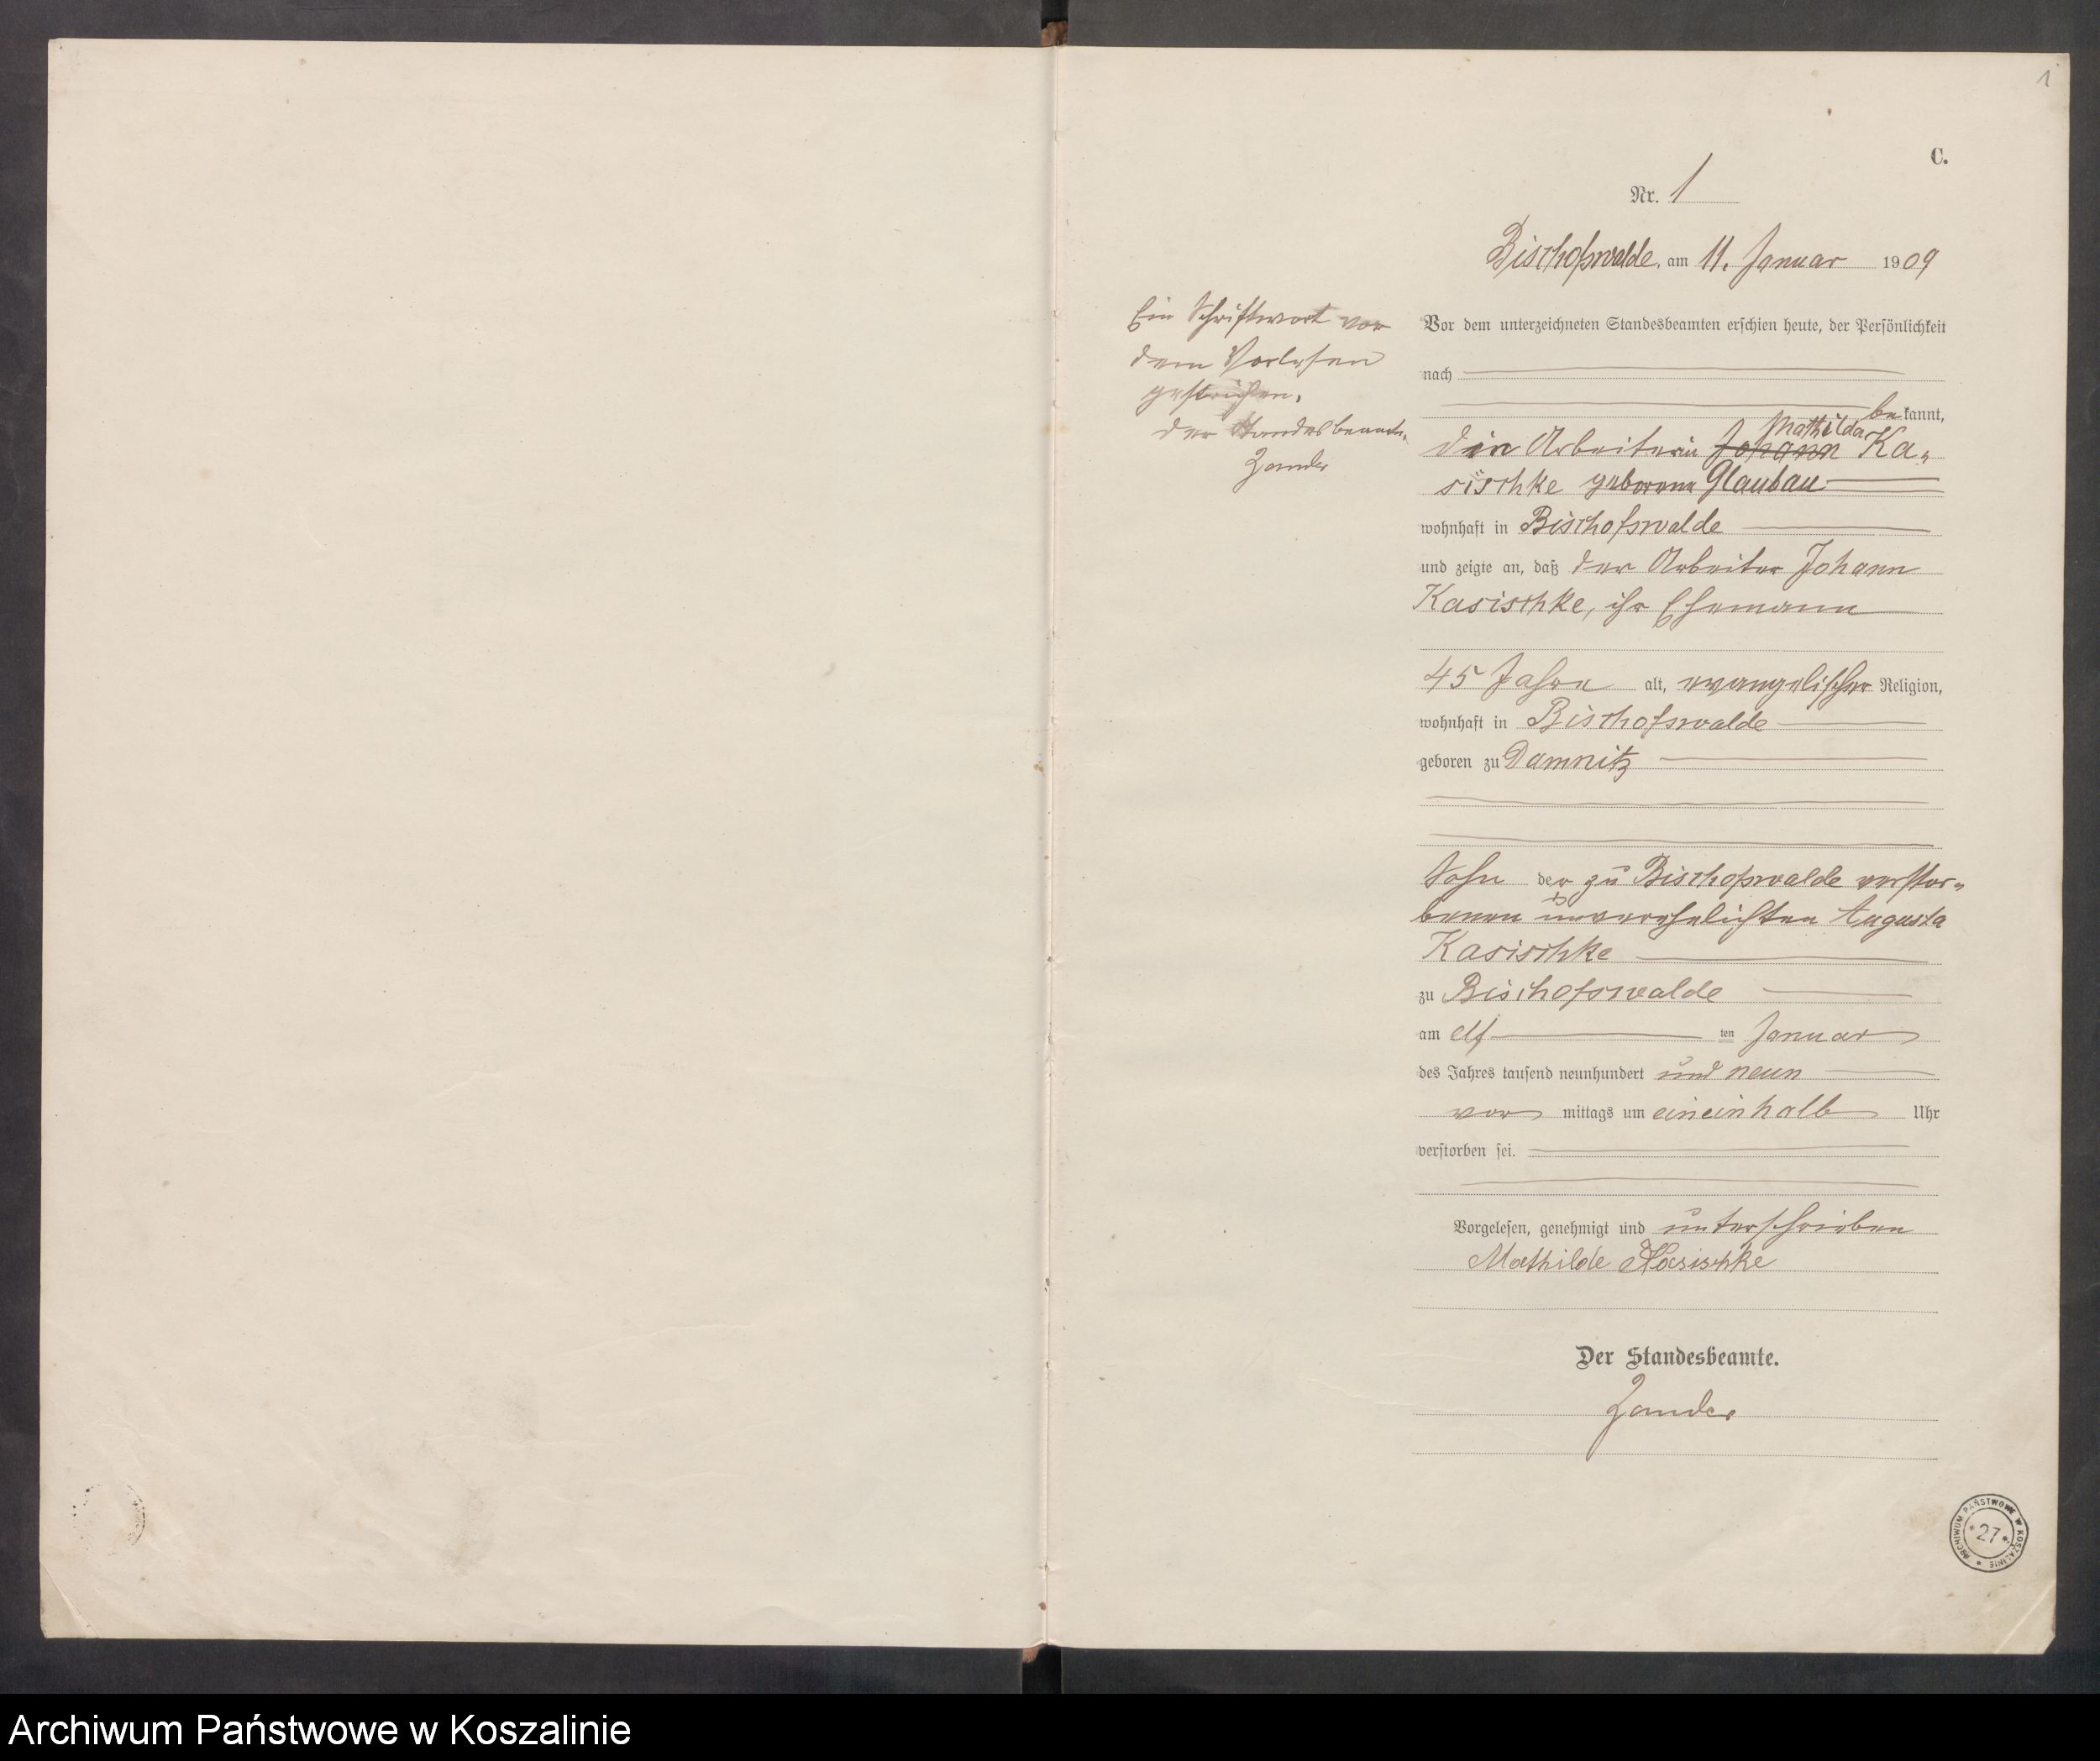 1
C.
Nr. 1
Bischofswalde, am 11. Januar 1909
Ein Schriftwort vor
dem Vorlesen
gestrichen.
Der Standesbeamte.
Zander
Vor dem unterzeichneten Standesbeamten erschien heute, der Persönlichkeit
nach
bekannt,
Mathilda
die Arbeiterin Johann Ka-
sischke geborene Glaubau
wohnhaft in Bischofswalde
und zeigte an, daß der Arbeiter Johann
Kasischke, ihr Ehemann
45 Jahre alt, evangelischer Religion,
wohnhaft in Bischofswalde
geboren zu Damnitz
Sohn der zu Bischofswalde verstor-
benen unverehelichten Augusta
Kasischke
zu Bischofswalde
am elf ten Januar
des Jahres tausend neunhundert und neun
vor mittags um eineinhalb Uhr
verstorben sei.
Vorgelesen, genehmigt und unterschrieben
Mathilde Kasischke
Der Standesbeamte.
Zander
ARCHIWUM PAŃSTWOWE W KOSZALINIE
*27*
Archiwum Państwowe w Koszalinie